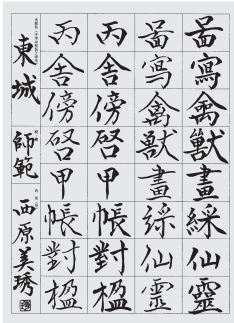 啚寫禽獸畫綵仙靈
啚寫禽獸畫綵仙靈
丙舍傍啓甲帳對楹
丙舍傍啓甲帳對楹
東城 師範 西原美琇